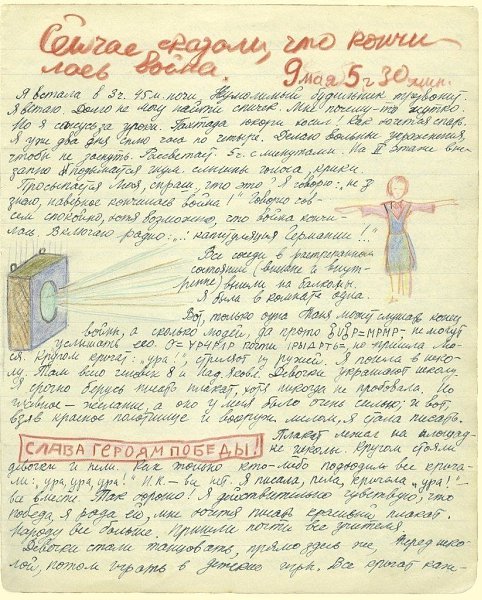 Сейчас сказали, что кончи-
лась война. 9 мая 5 ч 30 мин.
Я встала в 3 ч. 45 м. ночи. Неумолимый будильник трезвонит.
Я встаю. Долго не могу найти спичек. Мне почему-то жутко.
Но я сажусь за уроки. как хочется спать.
Я уж два дня сплю часа по четыре. Делаю вольные упражнения,
чтобы не заснуть. Рассветает. 5 ч. с минутами. На II этаже вне-
запно поднимается шум. слышны голоса, крики.
Просыпается Люся, спраш, что это? Я говорю: „не
знаю, наверное кончилась война!" Говорю сов-
сем спокойно, хотя возможно, что война кончи-
лась. Включаю радио: „: капитуляция Германии!.."
Все соседи в растрепанном
состоянии (внешне и внут-
ренне) вышли на балконы.
Я была в комнате одна.
Вот, только одна может слушать конец
войны, а сколько людей, да просто не могут
услышать его. почти не пришла Лю-
ся. Кругом кричат: „ура!", стреляют из ружей. Я пошла в шко-
лу. Там всего человек 8 и Над. Девочки украшают школу.
Я срочно берусь писать плакат, хотя никогда не пробовала. Но
главное - желание, а оно у меня было очень сильно; и вот
взяв красное полотнище и вооруж. мелом, я стала писать.
СЛАВА ГЕРОЯМ ПОБЕДЫ!
Плакат лежал на площад-
ке школы. Кругом стояли
девочки и пели. Как только кто-либо подходил все крича-
ли: „ура, ура, ура!" И.К. - все нет. Я писала, пела, кричала „ура!" -
все вместе. Так хорошо! Я действительно чувствую, что
победа, я рада ей, мне хочется писать красивый плакат.
Народу все больше. Пришли почти все учителя.
Девочки стали танцовать, прямо здесь же, перед шко-
лой, потом играть в детские игры. Все кричат каж-